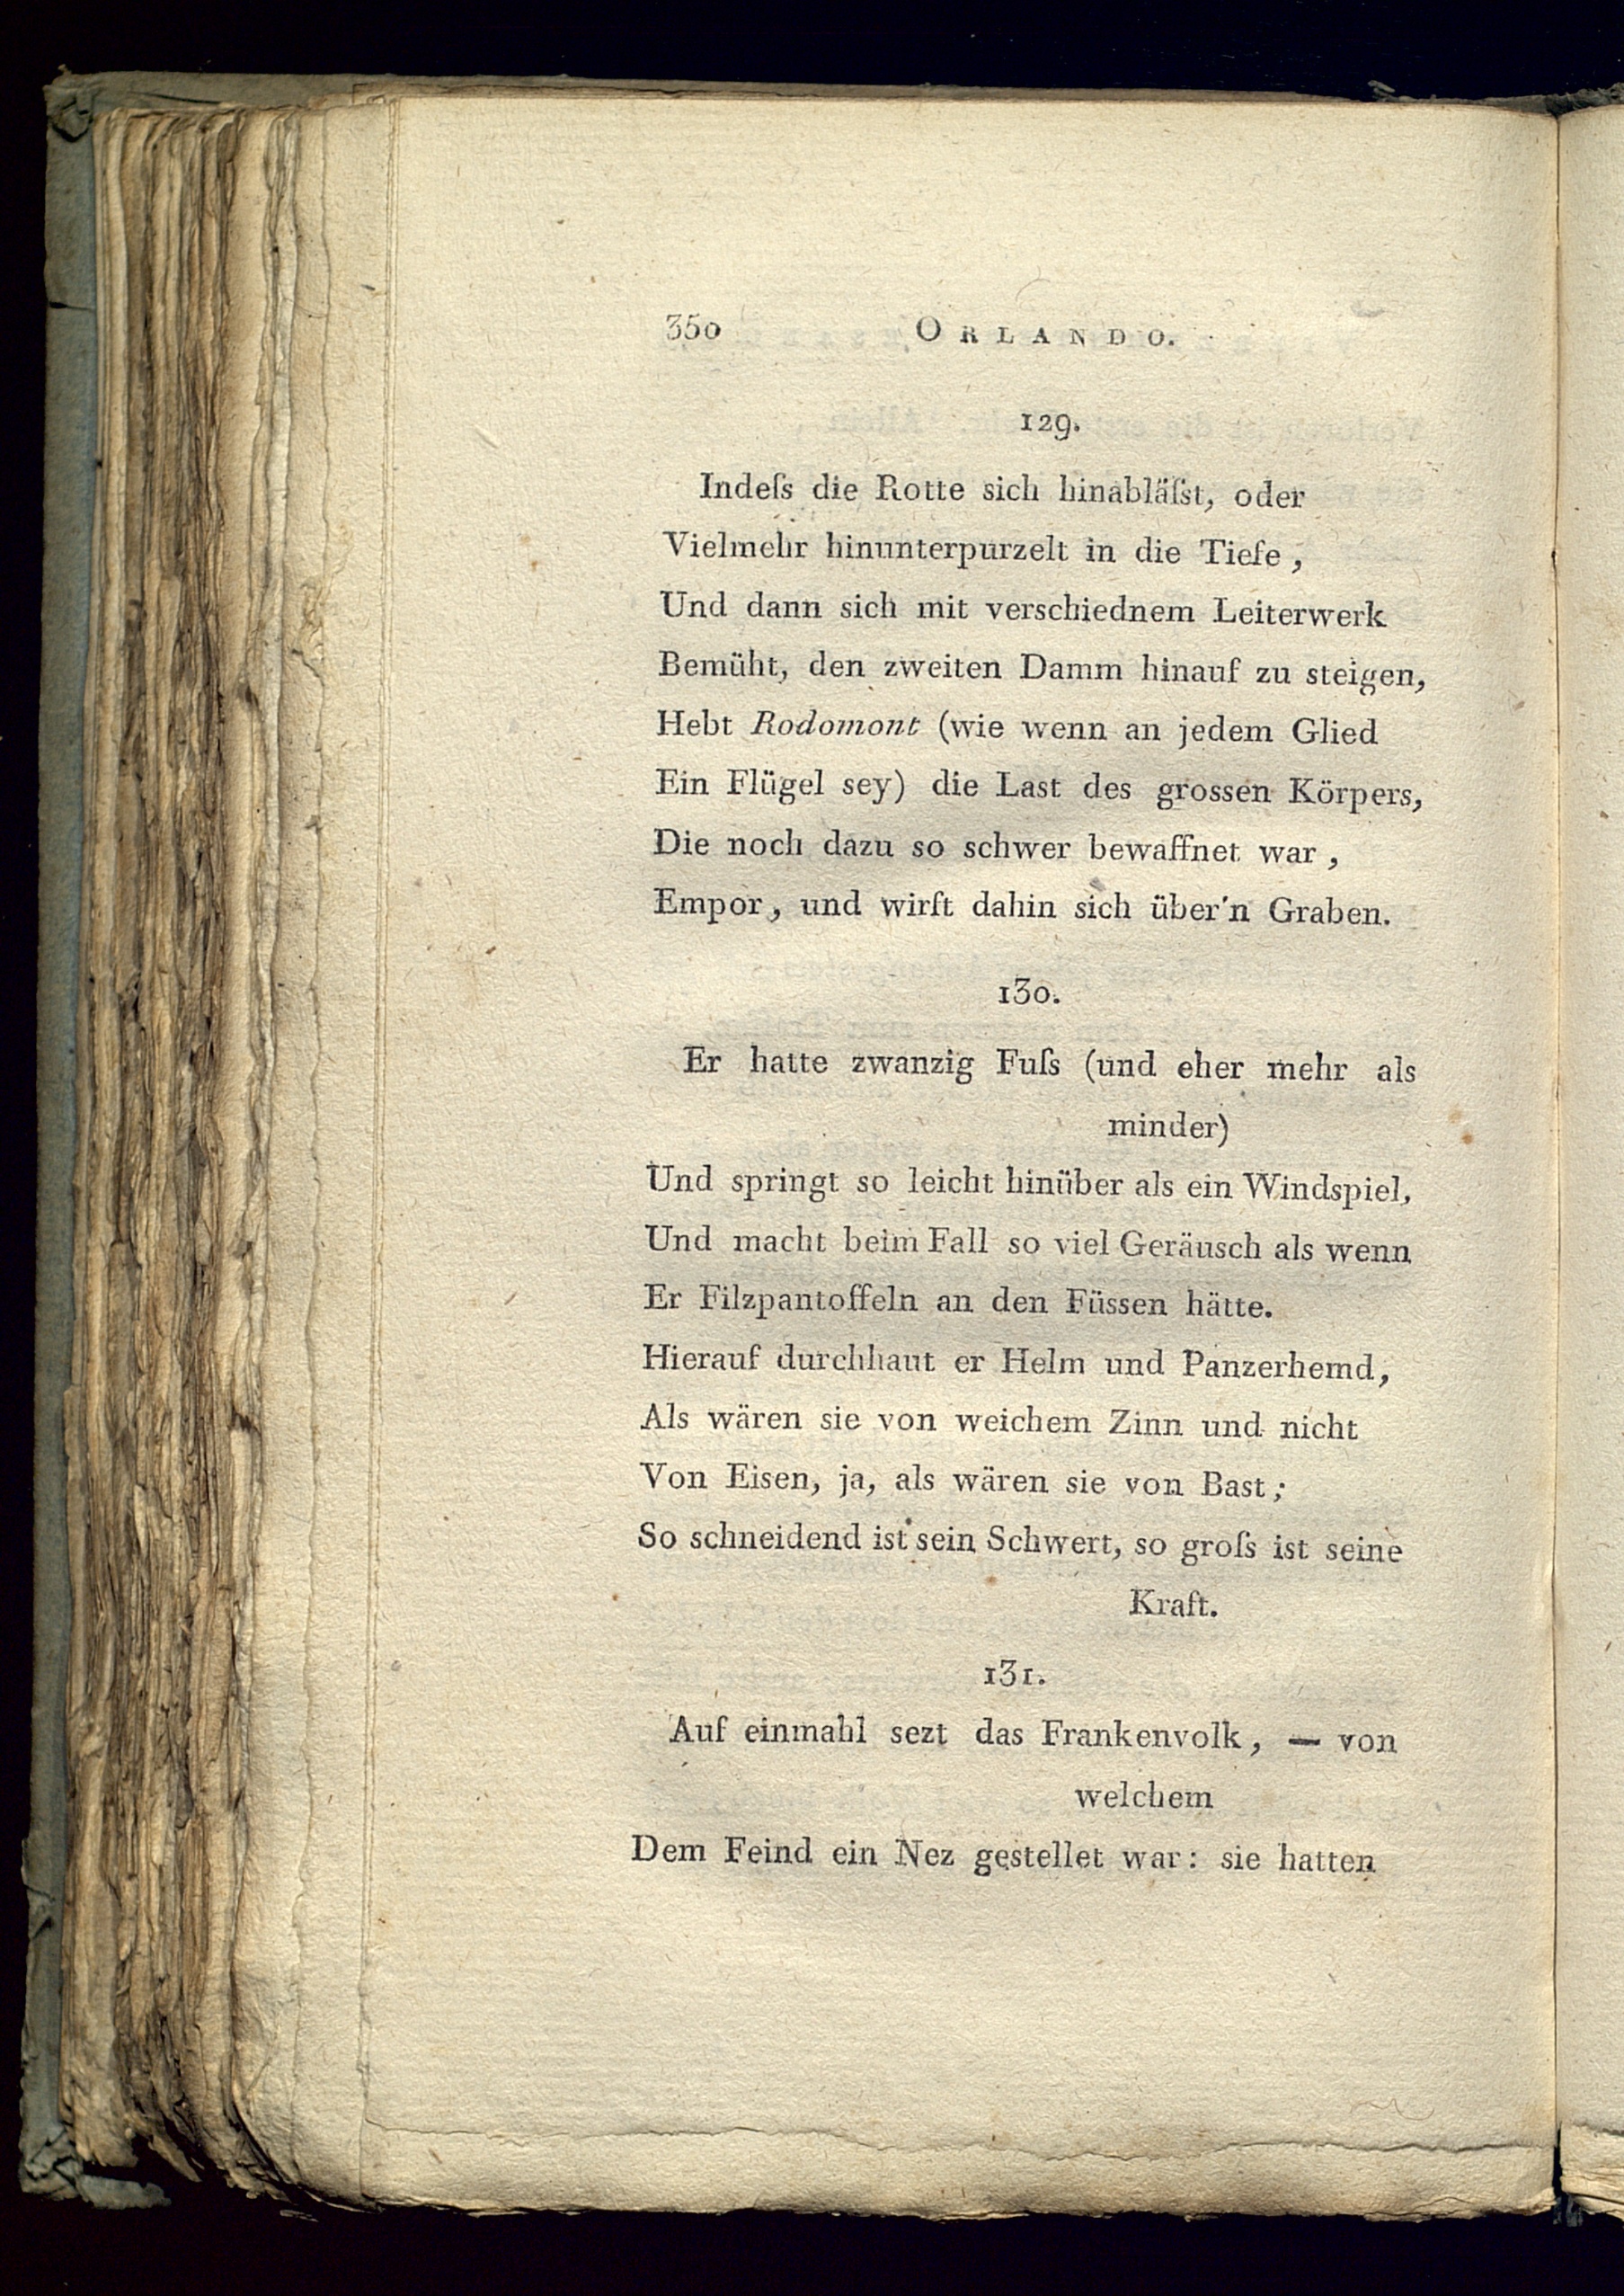 350 ORLANDO.
129.
Indeſs die Rotte sich hinabläſst, oder
Vielmehr hinunterpurzelt in die Tiefe,
Und dann sich mit verschiednem Leiterwerk
Bemüht, den zweiten Damm hinauf zu steigen,
Hebt Rodomont (wie wenn an jedem Glied
Ein Flügel sey) die Last des grossen Körpers,
Die noch dazu so schwer bewaffnet war,
Empor, und wirft dahin sich über'n Graben.
130.
Er hatte zwanzig Fuſs (und eher mehr als
minder)
Und springt so leicht hinüber als ein Windspiel,
Und macht beim Fall so viel Geräusch als wenn
Er Filzpantoffeln an den Füssen hätte.
Hierauf durchhaut er Helm und Panzerhemd,
Als wären sie von weichem Zinn und nicht
Von Eisen, ja, als wären sie von Bast;
So schneidend ist sein Schwert, so groſs ist seine
Kraft.
131.
Auf einmahl sezt das Frankenvolk, — von
welchem
Dem Feind ein Nez gestellet war: sie hatten